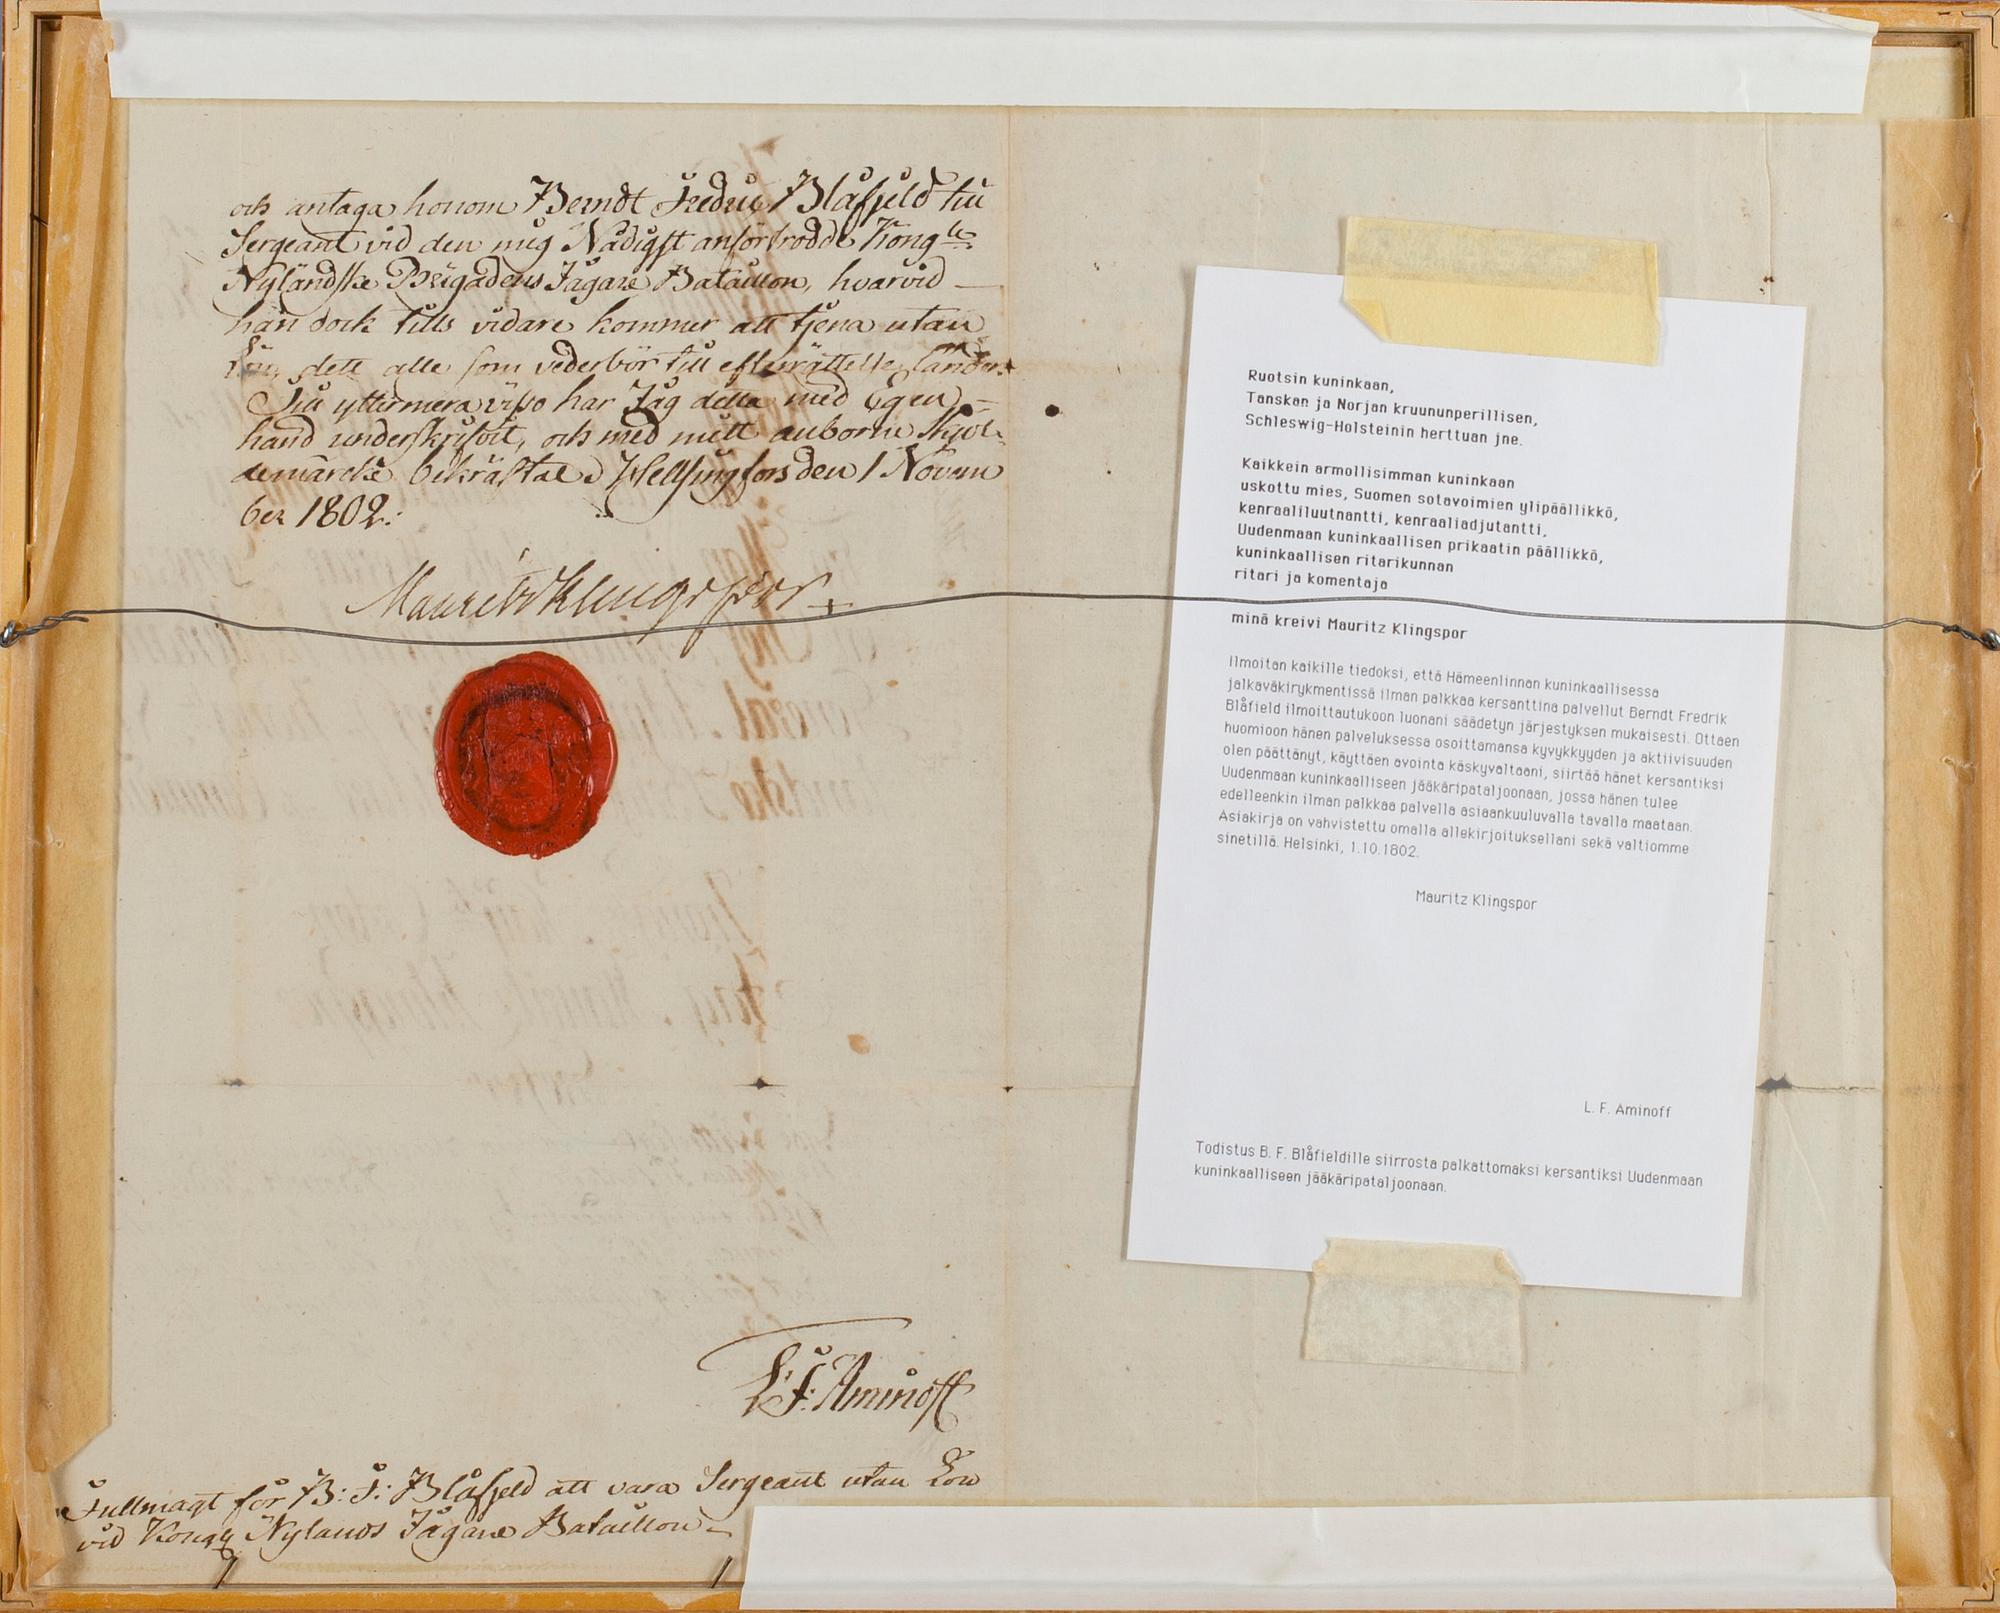 och antaga honom Berndt Fredric Blåfjeld till
Sergeant vid den mig Nådigst anförtrodde Kongle
Nyländske Brigadens Jägare Bataillon, hvarvid
han dock tills vidare kommer att tjena utan
Lön, dett alle som vederbör till efterrättelse länder.
Till yttermera visso har Jag detta med Egen
hand underskrifvit, och med mitt anborne
bekräftat Hellsingfors den 1 Novem
ber 1802.
Mauritz Klingspor
L: F: Aminoff
Fullmagt för B: F: Blåfjeld att vara Sergeant utan Lön
vid Kongl Nylands Jägare Bataillon
Ruotsin kuninkaan,
Tanskan ja Norjan kruununperillisen,
Schleswig-Holsteinin herttuan jne.
Kaikkein armollisimman kuninkaan
uskottu mies, Suomen sotavoimien ylipäällikkö,
kenraaliluutnantti, kenraaliadjutantti,
Uudenmaan kuninkaallisen prikaatin päällikkö,
kuninkaallisen ritarikunnan
ritari ja komentaja
minä kreivi Mauritz Klingspor
Ilmoitan kaikille tiedoksi, että Hämeenlinnan kuninkaallisessa
jalkaväkirykmentissä ilman palkkaa kersanttina palvellut Berndt Fredrik
Blåfield ilmoittautukoon luonani säädetyn järjestyksen mukaisesti. Ottaen
huomioon hänen palveluksessa osoittamansa kyvykkyyden ja aktiivisuuden
olen päättänyt, käyttäen avointa käskyvaltaani, siirtää hänet kersantiksi
Uudenmaan kuninkaalliseen jääkäripataljoonaan, jossa hänen tulee
edelleenkin ilman palkkaa palvella asiaankuuluvalla tavalla maataan.
Asiakirja on vahvistettu omalla allekirjoituksellani sekä valtiomme
sinetillä. Helsinki, 1.10.1802.
Mauritz Klingspor
L. F. Aminoff
Todistus B. F. Blåfieldille siirrosta palkattomaksi kersantiksi Uudenmaan
kuninkaalliseen jääkäripataljoonaan.